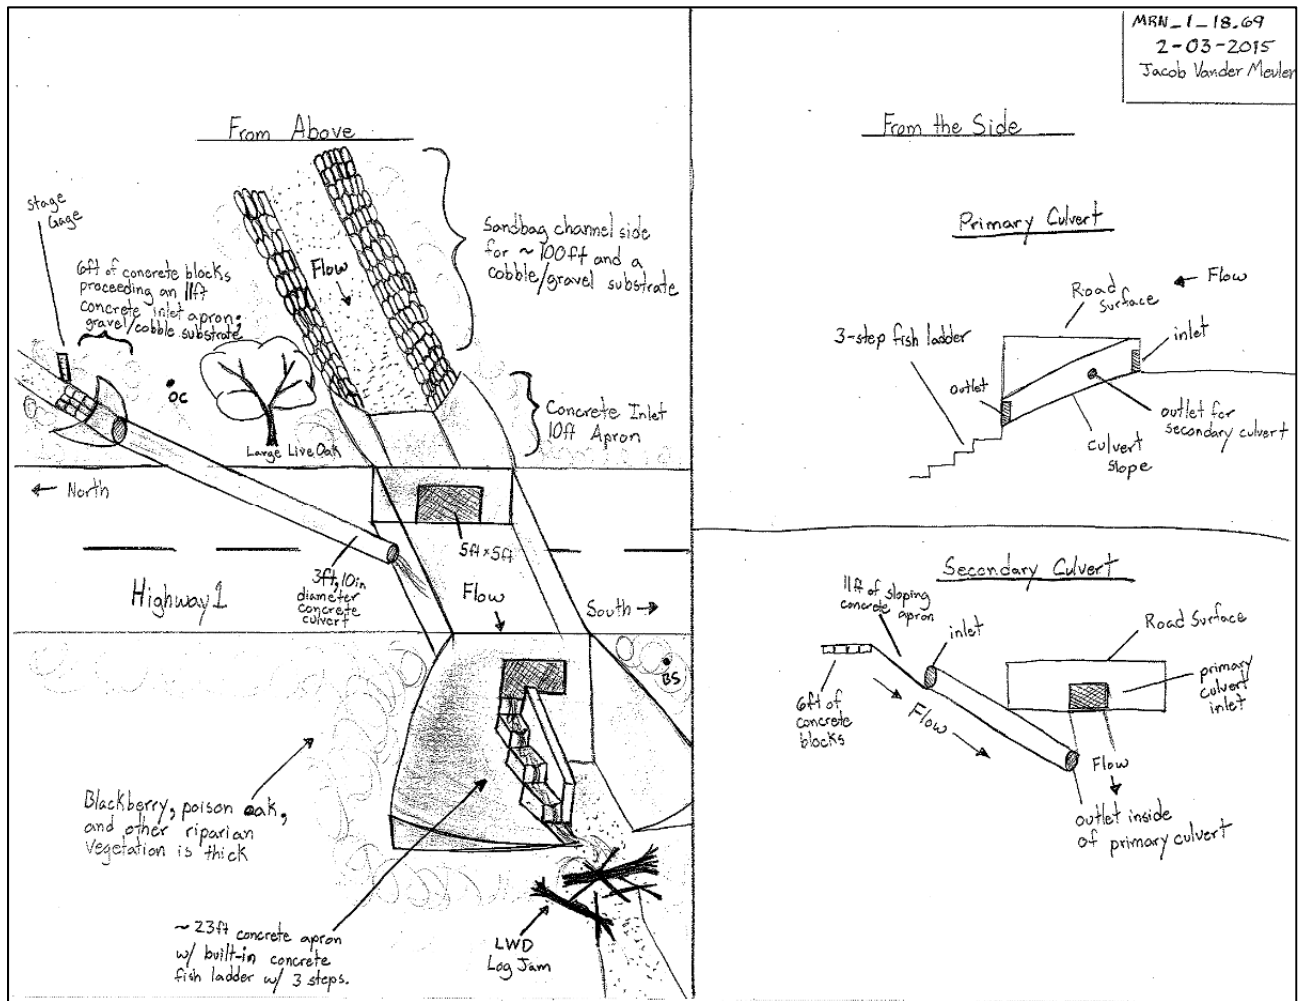 MRN_1_18.69
2-03-2015
Jacob Vander Meulen
From Above
Stage
Gage
6ft of concrete blocks
proceeding an 11ft
concrete inlet apron;
gravel/cobble substrate
Flow
Sandbag channel side
for ~100ft and a
cobble/gravel substrate
OC
Large Live Oak
Concrete Inlet
10ft Apron
← North
5ft x 5ft
3ft, 10in
diameter
concrete
culvert
Highway 1
Flow
South →
BS
Blackberry, poison oak,
and other riparian
vegetation is thick
~23ft concrete apron
w/ built-in concrete
fish ladder w/ 3 steps.
LWD
Log Jam
From the Side
Primary Culvert
← Flow
Road
Surface
3-step fish ladder
inlet
outlet
outlet for
secondary culvert
culvert
slope
Secondary Culvert
11ft of sloping
concrete apron
inlet
Road Surface
primary
culvert
inlet
6ft of
concrete
blocks
Flow
Flow
outlet inside
of primary culvert